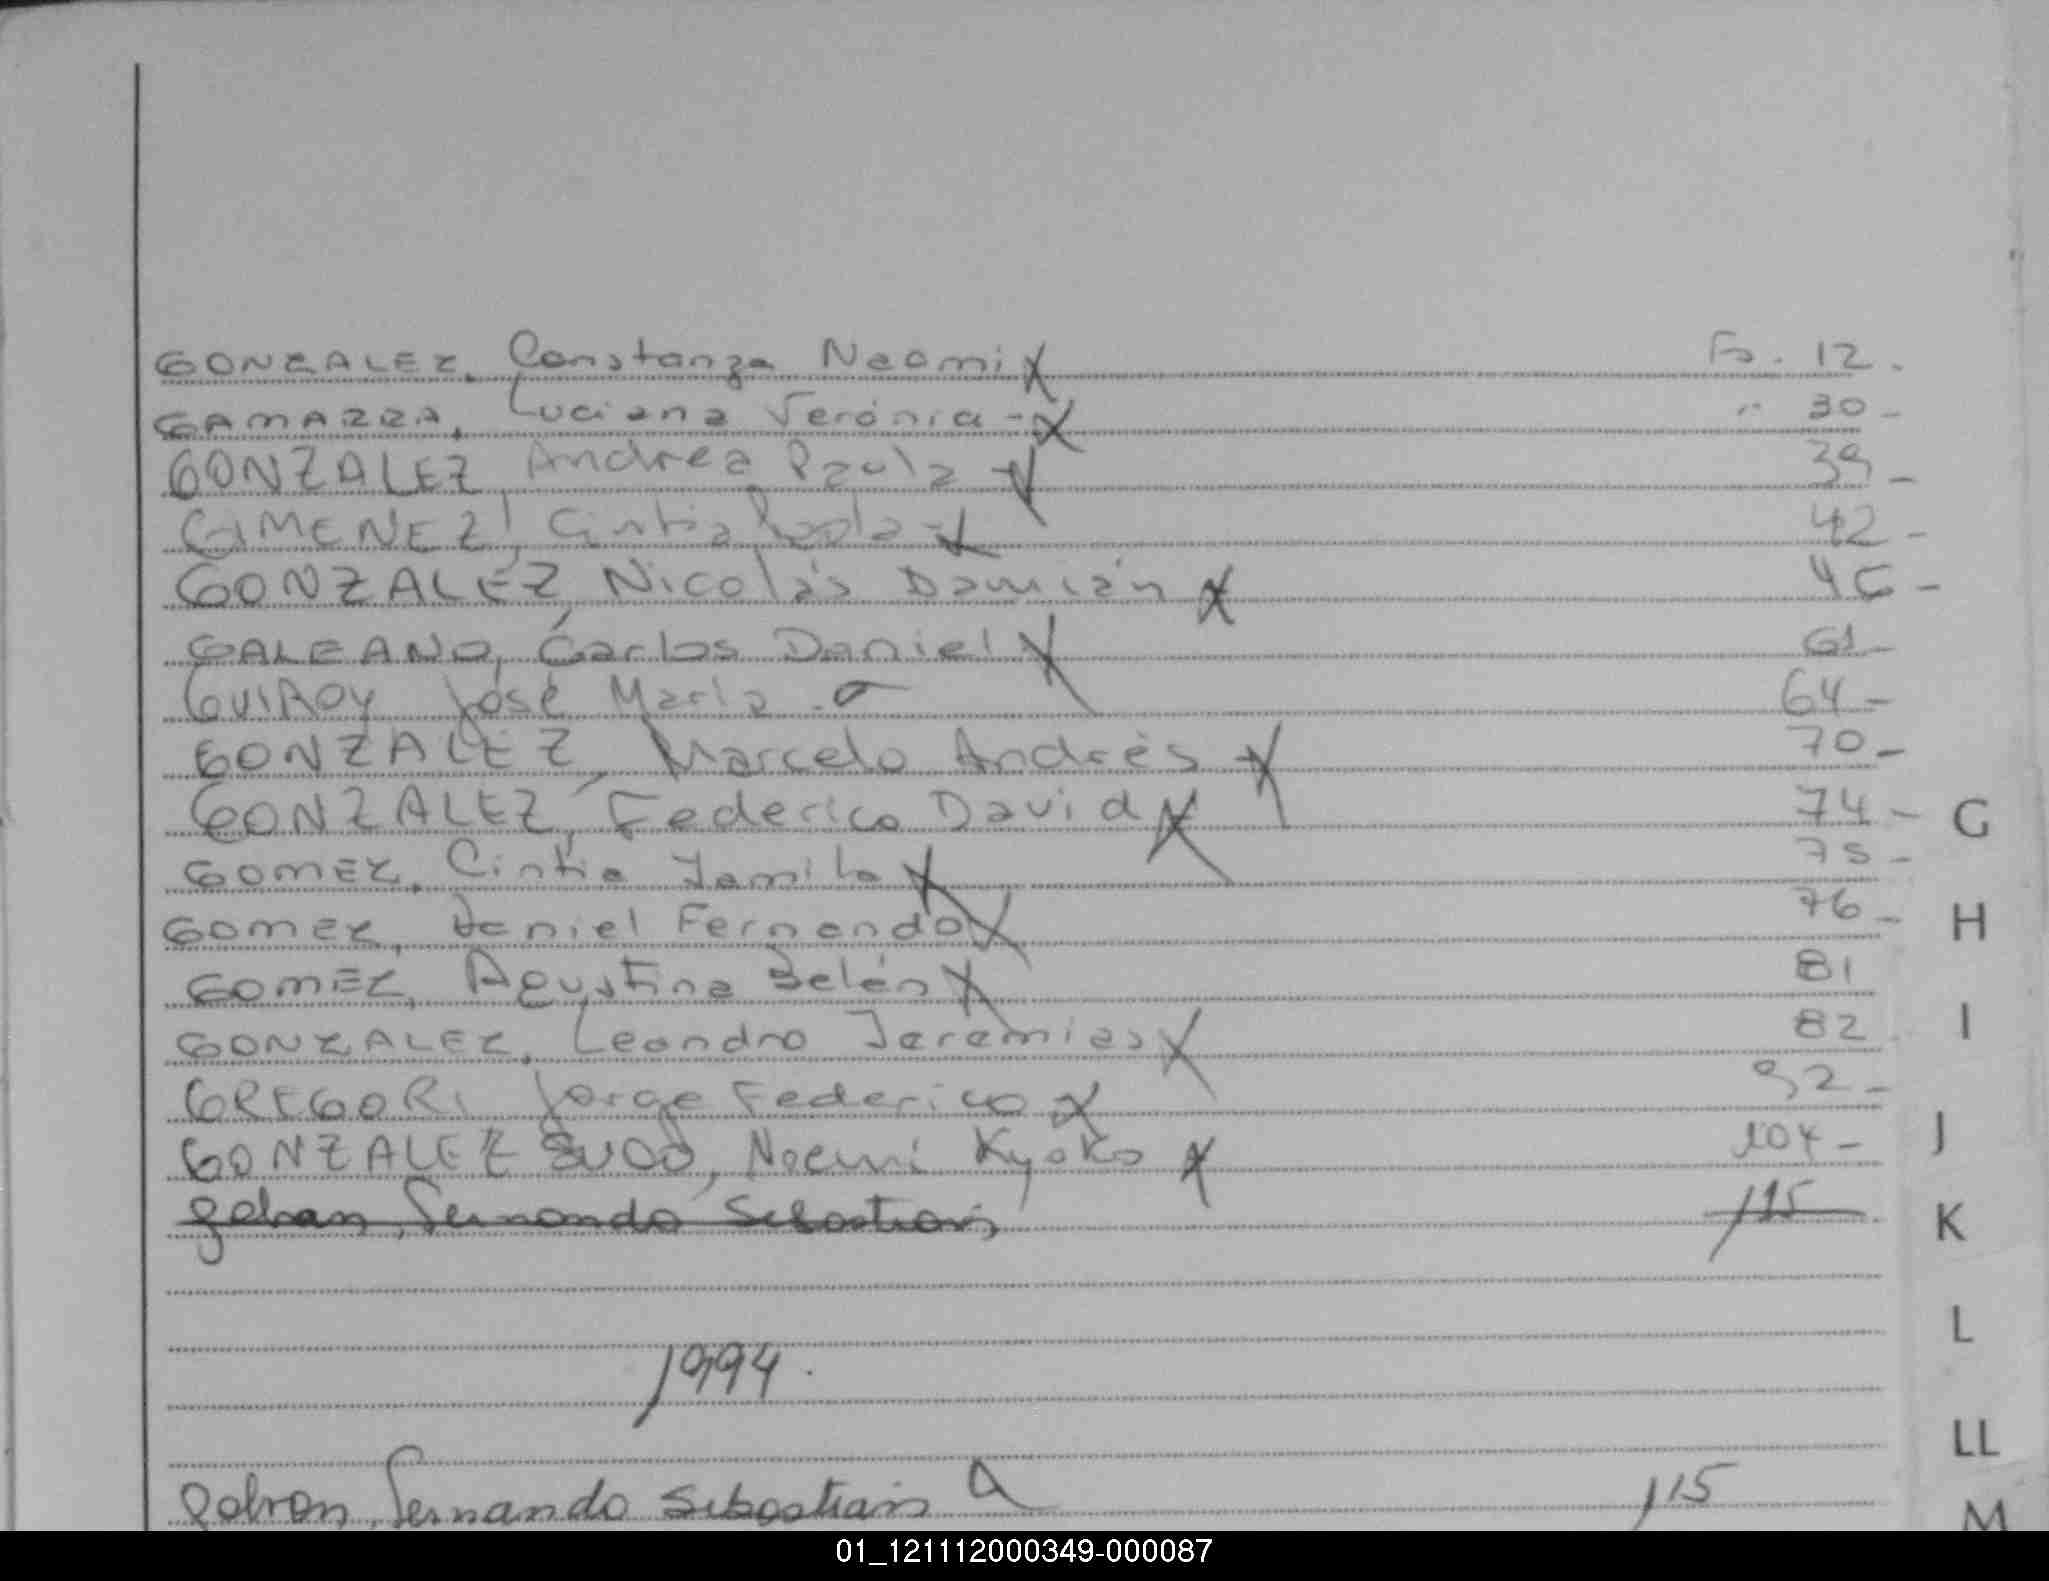 GONZALEZ, Constanza Neomi X Fo. 12.
GAMARRA, Luciana Verónia - X " 30 -
GONZALEZ, Andrea Paula X 39 -
GIMENEZ, Cintia Paola - X 42 -
GONZALEZ, Nicolás Damián X 45 -
GALEANO, Carlos Daniel X 61 -
GUIROY José María - 64 -
GONZALEZ, Marcelo Andrés X 70 -
GONZALEZ, Federico David X 74 -
GOMEZ, Cintia Yamila X 75 -
GOMEZ, Daniel Fernando X 76 -
GOMEZ, Agustina Belén X 81
GONZALEZ, Leandro Jeremias X 82
GREGORI Jorge Federico X 92 -
GONZALEZ, Noemí Kyoko X 104 -
Fernando Sebastian, 115
1994.
Fernando Sebastian 115
G
H
I
J
K
L
LL
M
01_121112000349-000087